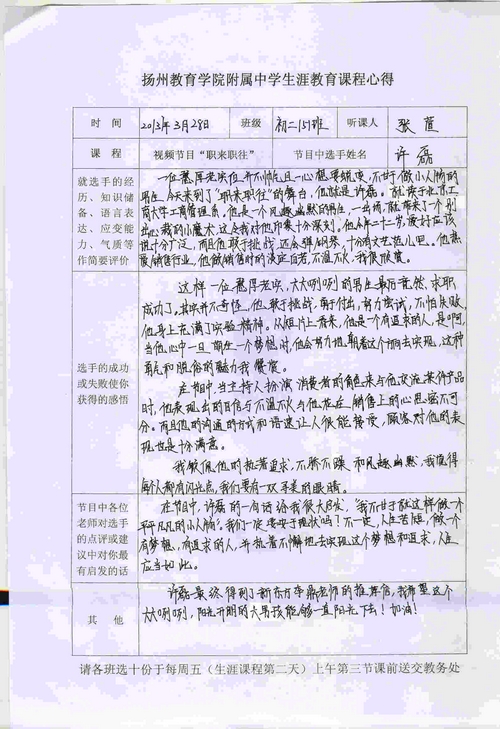 扬州教育学院附属中学生涯教育课程心得
时 间 2013年3月28日 班级 初二15班 听课人 张萱
课 程 视频节目“职来职往” 节目中选手姓名 许磊
就选手的经历、知识储备、语言表达、应变能力、气质等作简要评价
一位憨厚老实但并不
男生今天来到了“职来职往”的舞台，他就是许磊。
商大学工商管理系，他是一个风趣幽默的男生，一出场，就带来了一个别
出心裁的小魔术，这令我对他印象十分深刻。
说十分广泛，而且他敢于挑战，还会弹钢琴，十分有文艺范儿吧。他热
衷销售行业，他做销售时的淡定自若，不温不火，我很欣赏。
选手的成功或失败使你获得的感悟
这样一位憨厚老实，大大咧咧的男生最后竟然，求职
成功了。其实并不奇怪，他敢于挑战，勇于付出，努力尝试，不怕失败，
他身上充满了实验精神。从短片上看来，他是一个有追求的人，是啊，
当他心中一旦萌生一个梦想时，他会努力地朝着这个方向去实现，这种
魅力我赞赏
在节目中，当主持人扮演消费者的角色来与他交流某件产品
时，他表现出的自信与不温不火与他花在销售上的心思密不可
分。而且他的沟通的方式和语速让人很能接受，顾客对他的表
现也是十分满意。
我钦佩他的执着追求，不骄不躁和风趣幽默，我觉得
每个人都有闪光点，我们要有一双寻美的眼睛。
节目中各位老师对选手的点评或建议中对你最有启发的话
在节目中，许磊的一句话给我很大启发，“我不甘于就这样做一个
平平凡凡的小人物”。我们一定要安于现状吗？不一定，人生苦短，做一个
有梦想，有追求的人，并执着不懈地去实现这个梦想和追求，人生
应当如此。
其 他
许磊最终得到了新东方李鼎老师的推荐信，我希望这个
大大咧咧，阳光开朗的大男孩能够一直阳光下去！加油！
请各班选十份于每周五（生涯课程第二天）上午第三节课前送交教务处